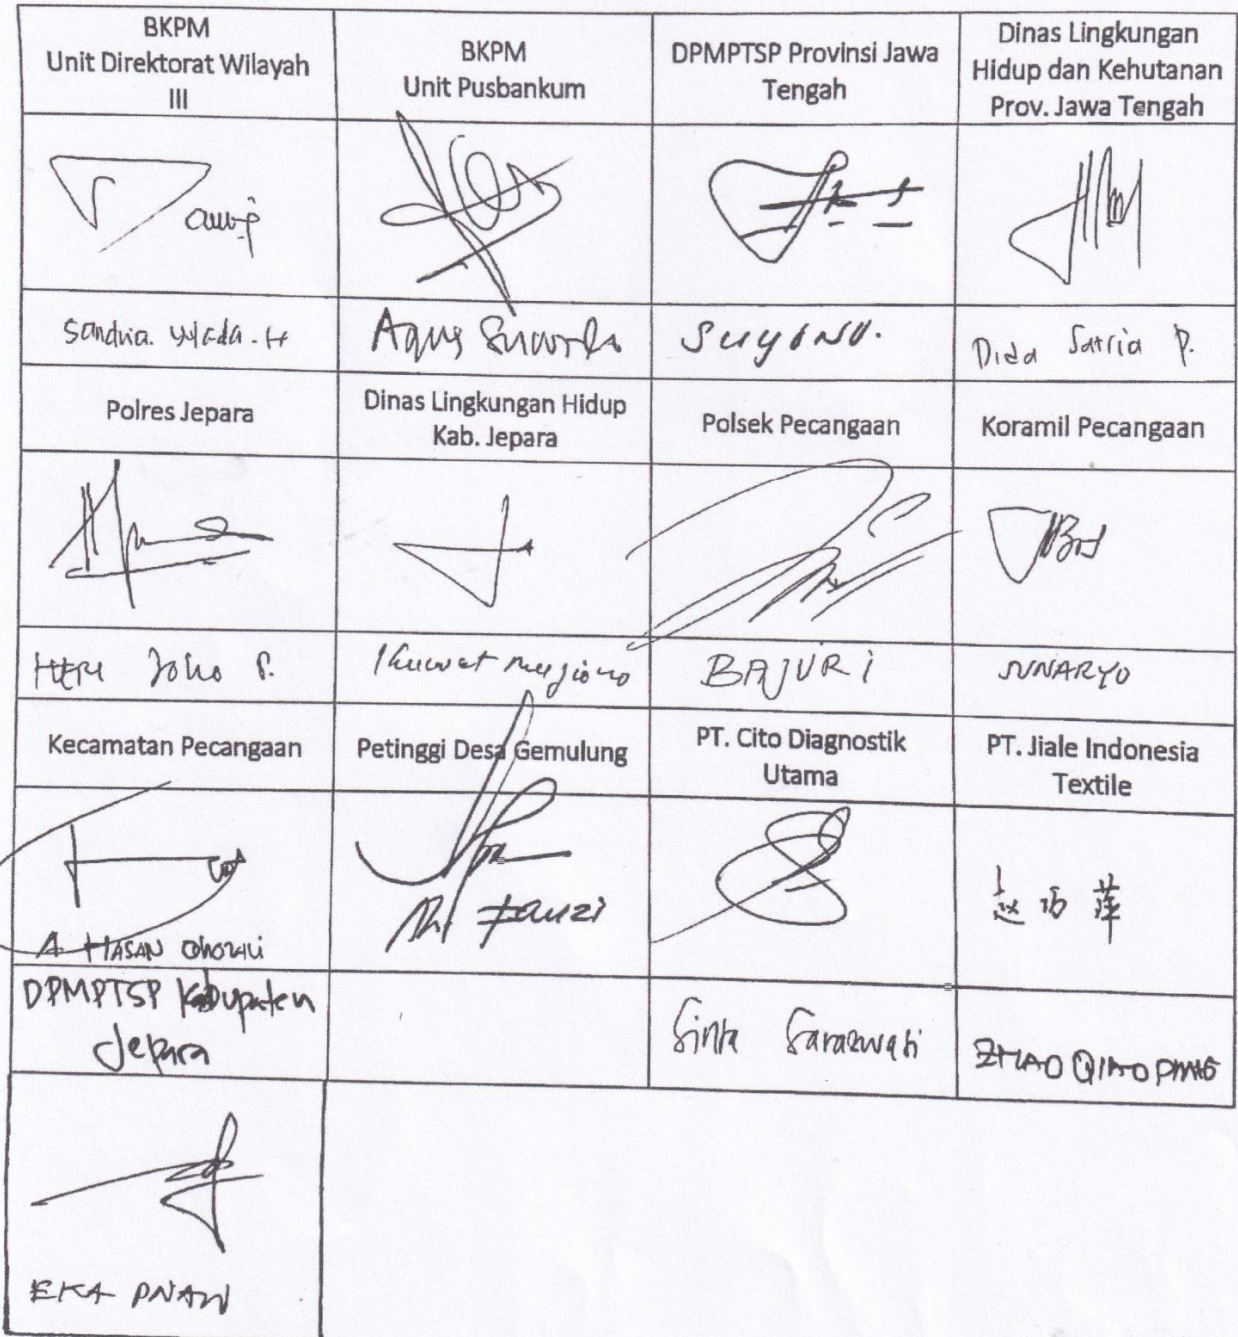 BKPM
Unit Direktorat Wilayah
III
BKPM
Unit Pusbankum
DPMPTSP Provinsi Jawa
Tengah
Dinas Lingkungan
Hidup dan Kehutanan
Prov. Jawa Tengah
Agus
Suyono.
Dida Satria P.
Polres Jepara
Dinas Lingkungan Hidup
Kab. Jepara
Polsek Pecangaan
Koramil Pecangaan
Heru Joko S.
Khuwat Mugiono
BAJURI
SUNARYO
Kecamatan Pecangaan
Petinggi Desa Gemulung
PT. Cito Diagnostik
Utama
PT. Jiale Indonesia
Textile
Fauzi
赵巧萍
A HASAN
DPMPTSP Kabupaten
Jepara
Sinta Saraswati
ZHAO QIAO PING
EKA